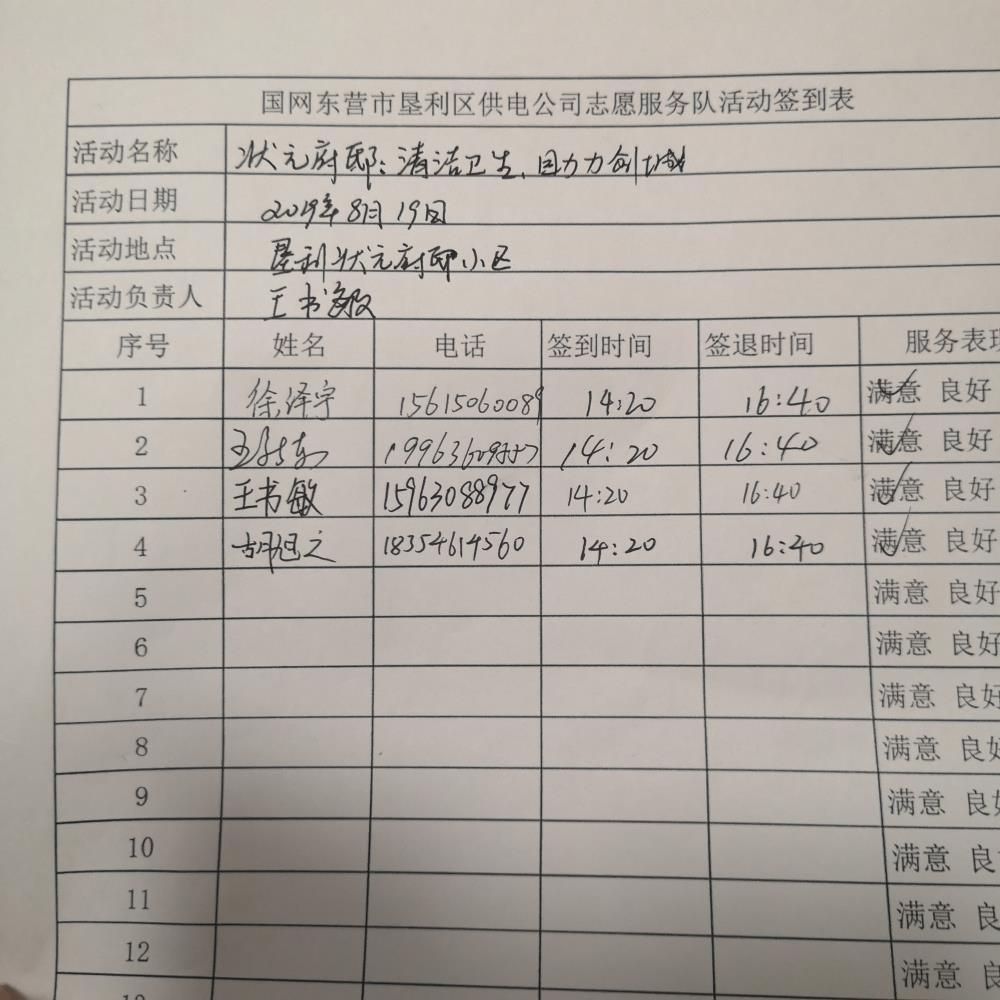 国网东营市垦利区供电公司志愿服务队活动签到表
活动名称 状元府邸:清洁卫生,助力创城
活动日期 2019年8月19日
活动地点 垦利状元府邸小区
活动负责人 王书敏
序号 姓名 电话 签到时间 签退时间 服务表现
1 徐泽宇 15615060089 14:20 16:40 满意 良好
2 14:20 16:40 满意 良好
3 王书敏 15963088977 14:20 16:40 满意 良好
4 胡旭之 18354614560 14:20 16:40 满意 良好
5 满意 良好
6 满意 良好
7 满意 良好
8 满意 良好
9 满意 良好
10 满意 良
11 满意 良
12 满意 良